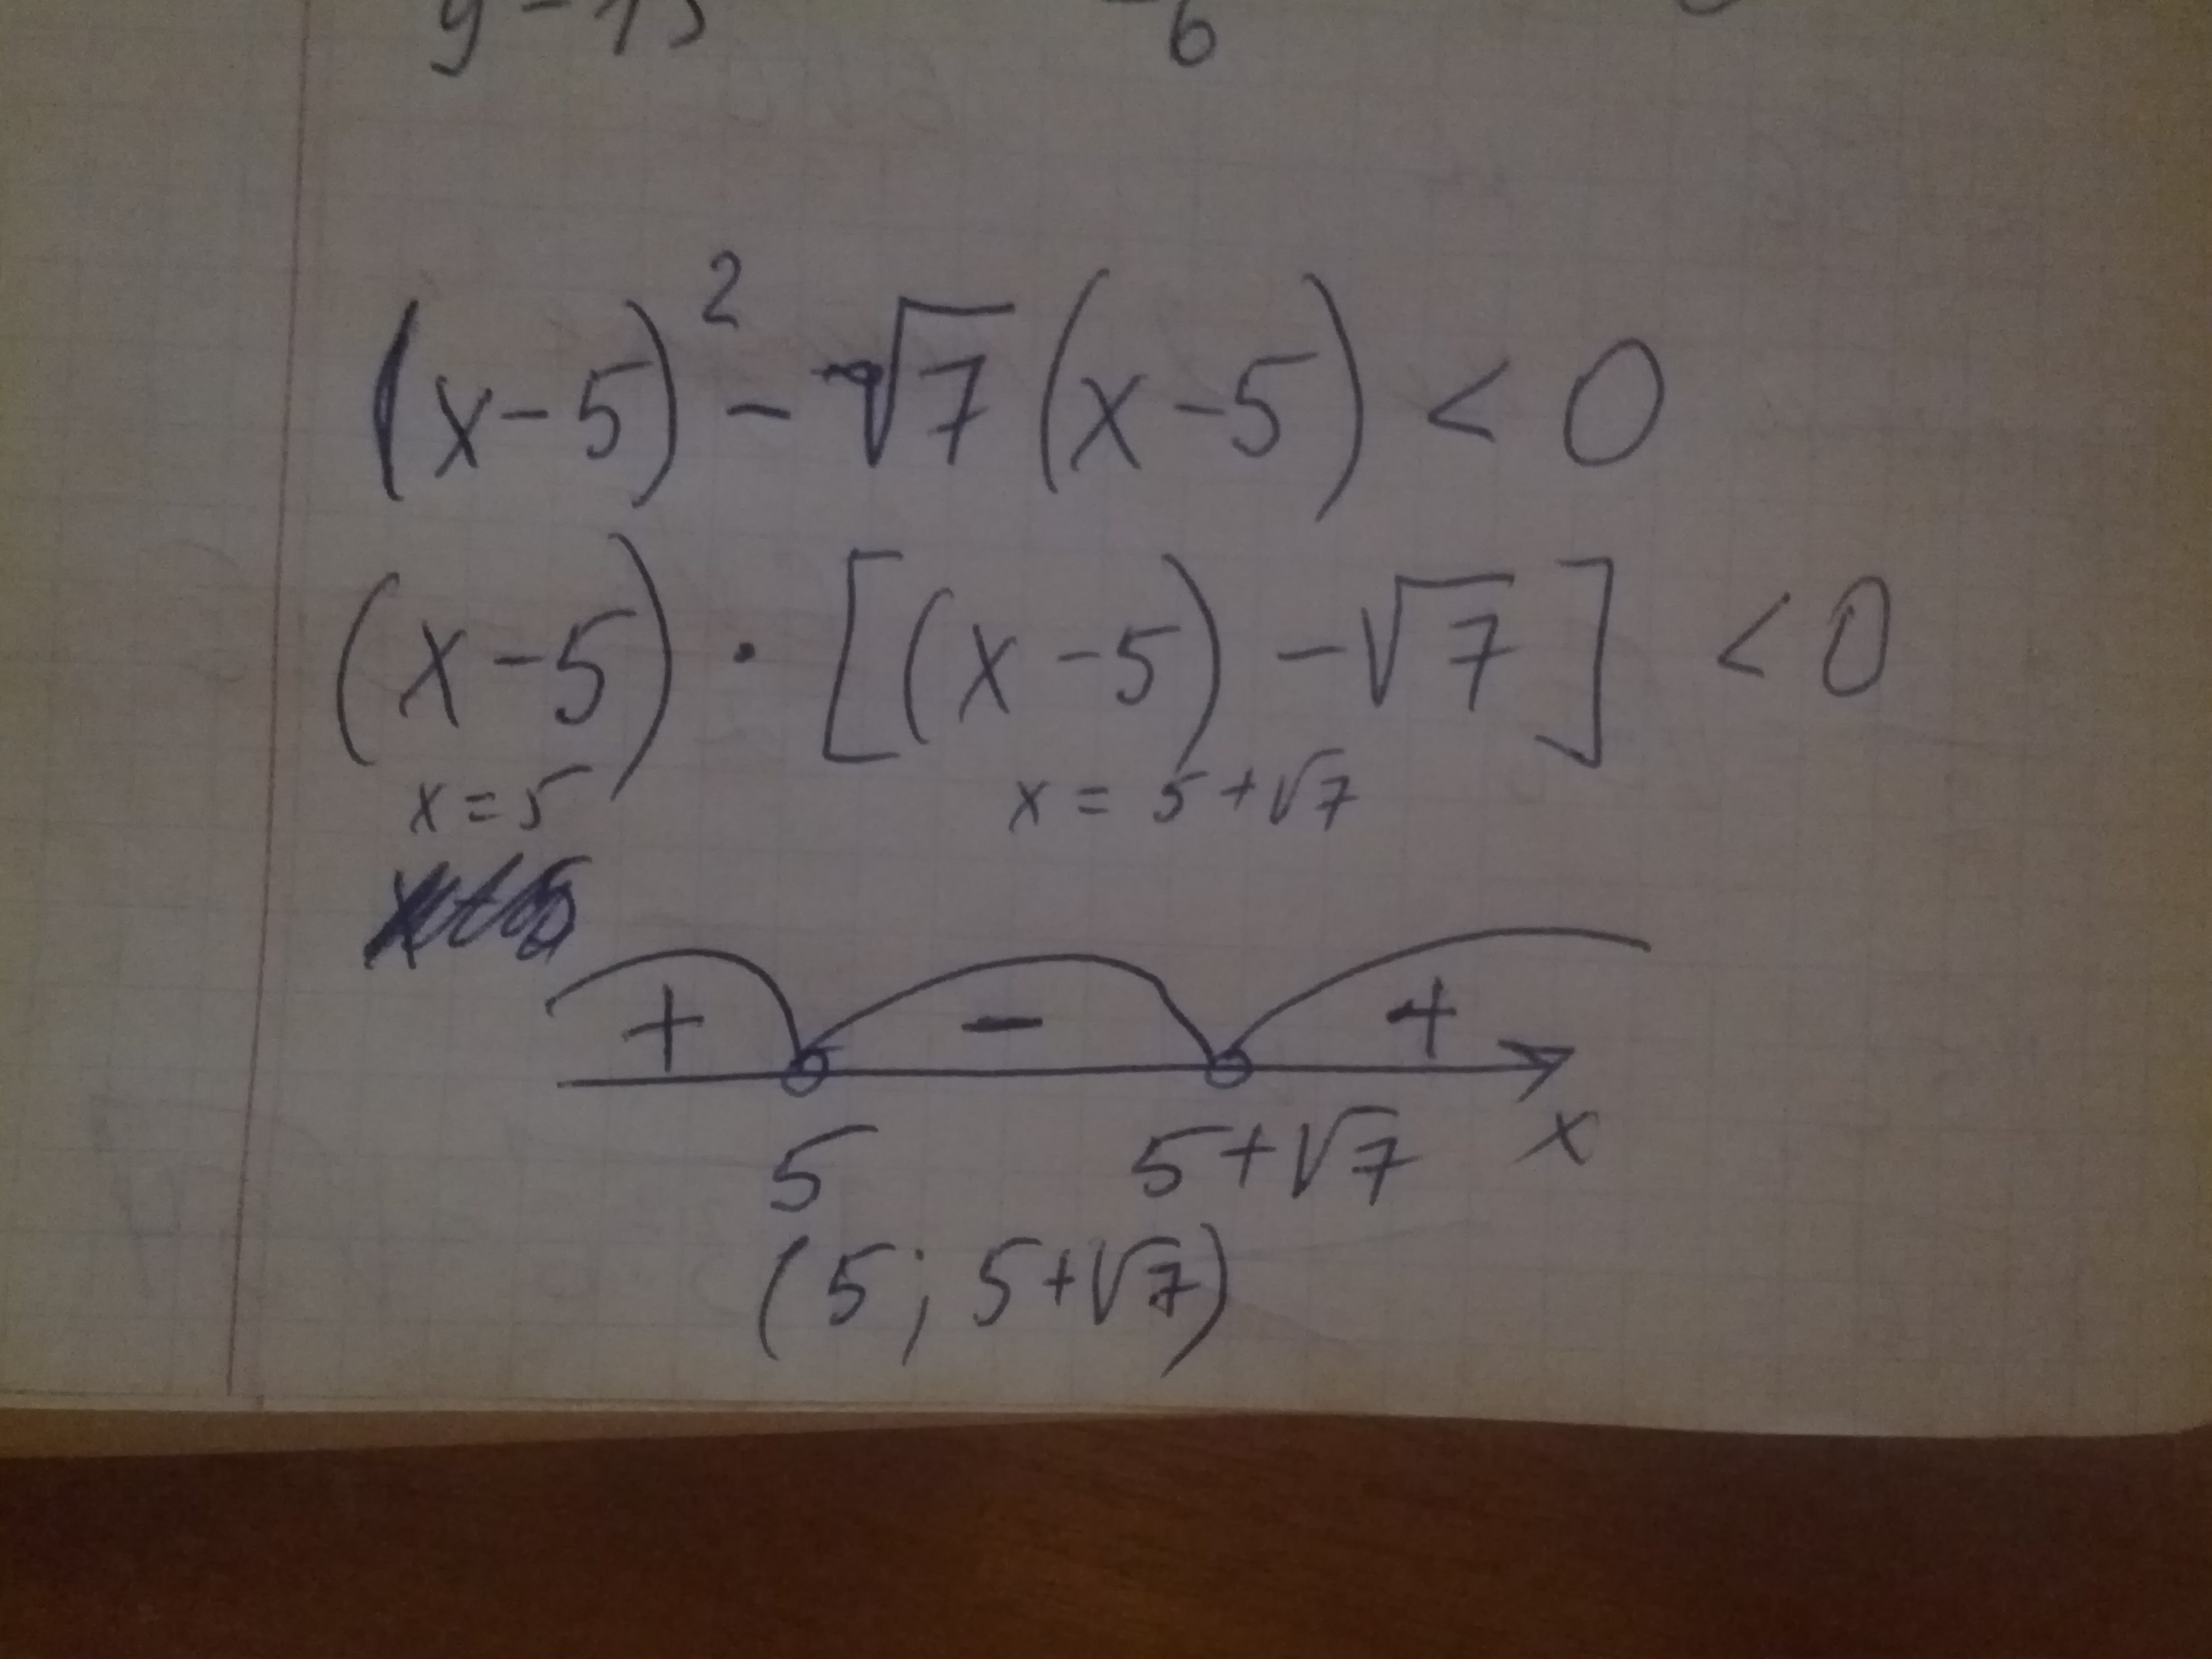 (x-5)² - √7(x-5) < 0
(x-5) · [(x-5) - √7] < 0
x = 5 x = 5+√7
+ - +
5 5+√7 x
(5; 5+√7)